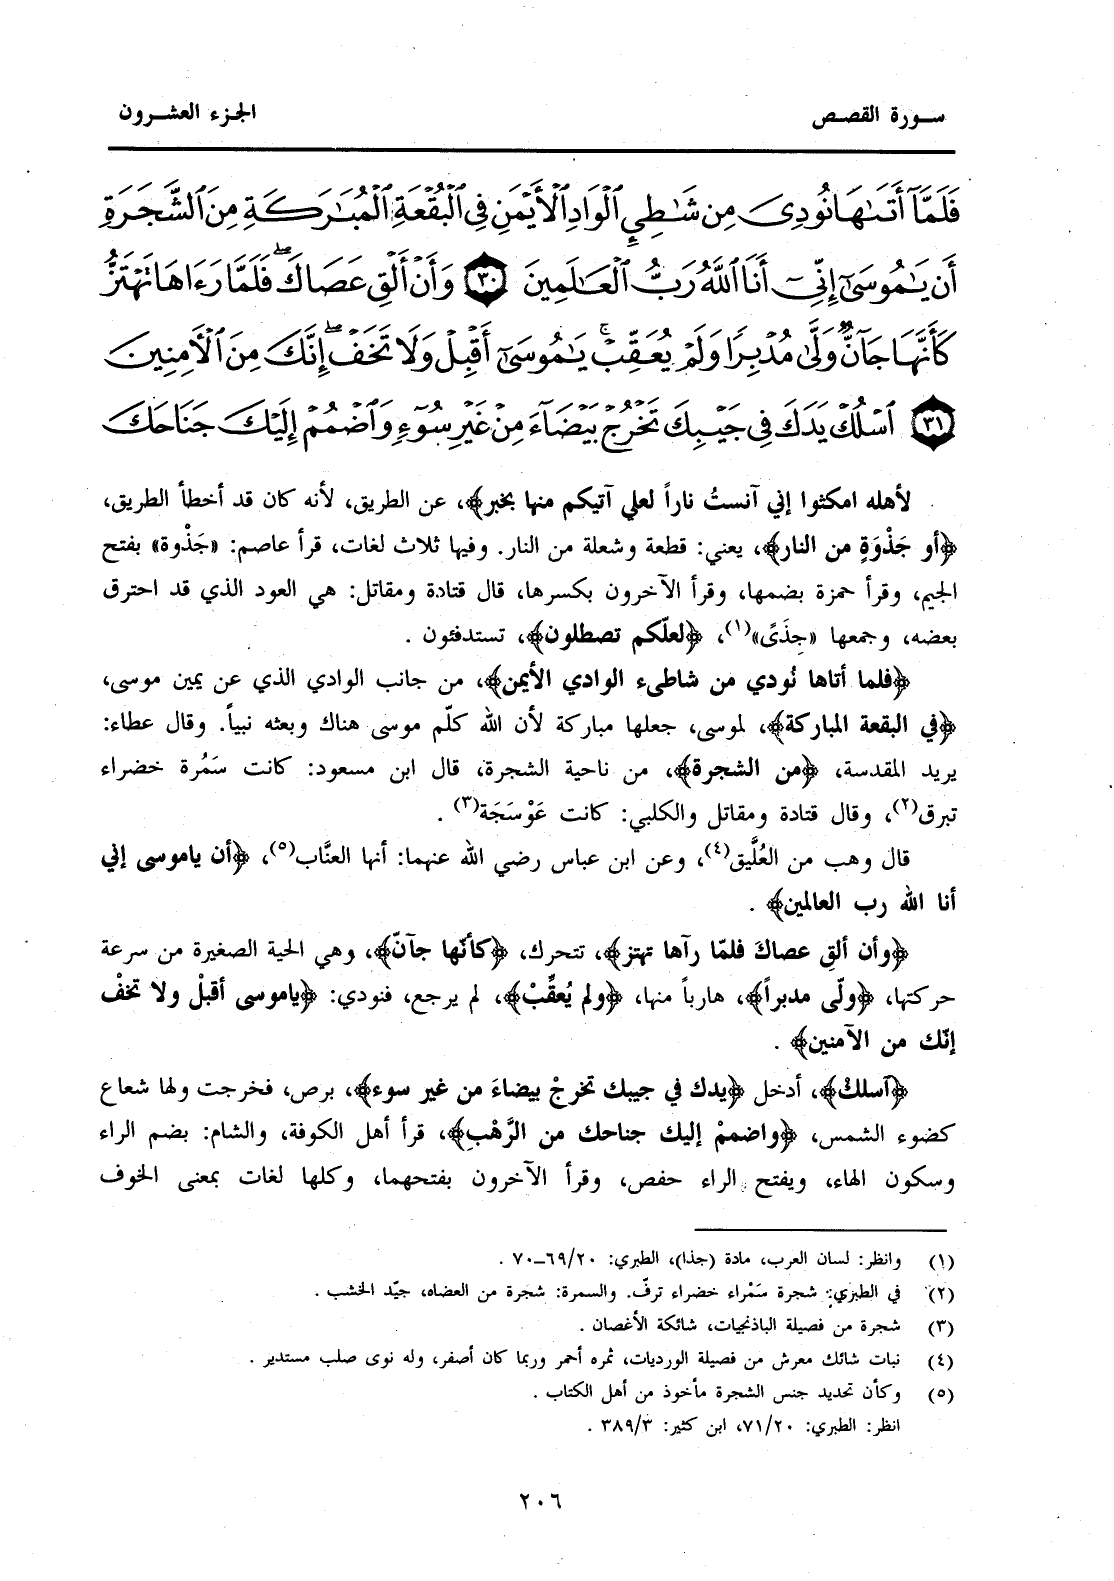 سورة القصص
الجزء العشرون
فَلَمَّآ أَتَىٰهَا نُودِىَ مِن شَٰطِىِٕ ٱلْوَادِ ٱلْأَيْمَنِ فِى ٱلْبُقْعَةِ ٱلْمُبَٰرَكَةِ مِنَ ٱلشَّجَرَةِ
أَن يَٰمُوسَىٰٓ إِنِّىٓ أَنَا ٱللَّهُ رَبُّ ٱلْعَٰلَمِينَ ٣٠ وَأَنْ أَلْقِ عَصَاكَ ۖ فَلَمَّا رَءَاهَا تَهْتَزُّ
كَأَنَّهَا جَآنٌّ وَلَّىٰ مُدْبِرًا وَلَمْ يُعَقِّبْ ۚ يَٰمُوسَىٰٓ أَقْبِلْ وَلَا تَخَفْ ۖ إِنَّكَ مِنَ ٱلْءَامِنِينَ
٣١ ٱسْلُكْ يَدَكَ فِى جَيْبِكَ تَخْرُجْ بَيْضَآءَ مِنْ غَيْرِ سُوٓءٍ وَٱضْمُمْ إِلَيْكَ جَنَاحَكَ
لأهله امكثوا إني آنستُ ناراً لعلي آتيكم منها بخبر﴾، عن الطريق، لأنه كان قد أخطأ الطريق،
﴿أو جَذْوَةٍ من النار﴾، يعني: قطعة وشعلة من النار. وفيها ثلاث لغات، قرأ عاصم: «جَذْوة» بفتح
الجيم، وقرأ حمزة بضمها، وقرأ الآخرون بكسرها، قال قتادة ومقاتل: هي العود الذي قد احترق
بعضه، وجمعها «جِذَىً»(١)، ﴿لعلّكم تصطلون﴾، تستدفئون .
﴿فلما أتاها نُودي من شاطىء الوادي الأيمن﴾، من جانب الوادي الذي عن يمين موسى،
﴿في البقعة المباركة﴾، لموسى، جعلها مباركة لأن الله كلّم موسى هناك وبعثه نبياً. وقال عطاء:
يريد المقدسة، ﴿من الشجرة﴾، من ناحية الشجرة، قال ابن مسعود: كانت سَمُرة خضراء
تبرق(٢)، وقال قتادة ومقاتل والكلبي: كانت عَوْسَجَة(٣) .
قال وهب من العُلَّيق(٤)، وعن ابن عباس رضي الله عنهما: أنها العنَّاب(٥)، ﴿أن ياموسى إني
أنا الله رب العالمين﴾ .
﴿وأن ألقِ عصاكَ فلمّا رآها تهتز﴾، تتحرك، ﴿كأنّها جآنّ﴾، وهي الحية الصغيرة من سرعة
حركتها، ﴿ولّى مدبراً﴾، هارباً منها، ﴿ولم يُعقِّبْ﴾، لم يرجع، فنودي: ﴿ياموسى أقبلْ ولا تخفْ
إنّك من الآمنين﴾ .
﴿آسلكْ﴾، أدخل ﴿يدك في جيبك تخرجْ بيضاءَ من غير سوء﴾، برص، فخرجت ولها شعاع
كضوء الشمس، ﴿واضممْ إليك جناحك من الرَّهْبِ﴾، قرأ أهل الكوفة، والشام: بضم الراء
وسكون الهاء، ويفتح الراء حفص، وقرأ الآخرون بفتحهما، وكلها لغات بمعنى الخوف
(١) وانظر: لسان العرب، مادة (جذا)، الطبري: ٢٠/٦٩-٧٠ .
(٢) في الطبري: شجرة سَمْراء خضراء ترفّ. والسمرة: شجرة من العضاه، جيّد الخشب .
(٣) شجرة من فصيلة الباذنجيات، شائكة الأغصان .
(٤) نبات شائك معرش من فصيلة الورديات، ثمره أحمر وربما كان أصفر، وله نوى صلب مستدير .
(٥) وكأن تحديد جنس الشجرة مأخوذ من أهل الكتاب .
انظر: الطبري: ٢٠/٧١، ابن كثير: ٣/٣٨٩ .
٢٠٦